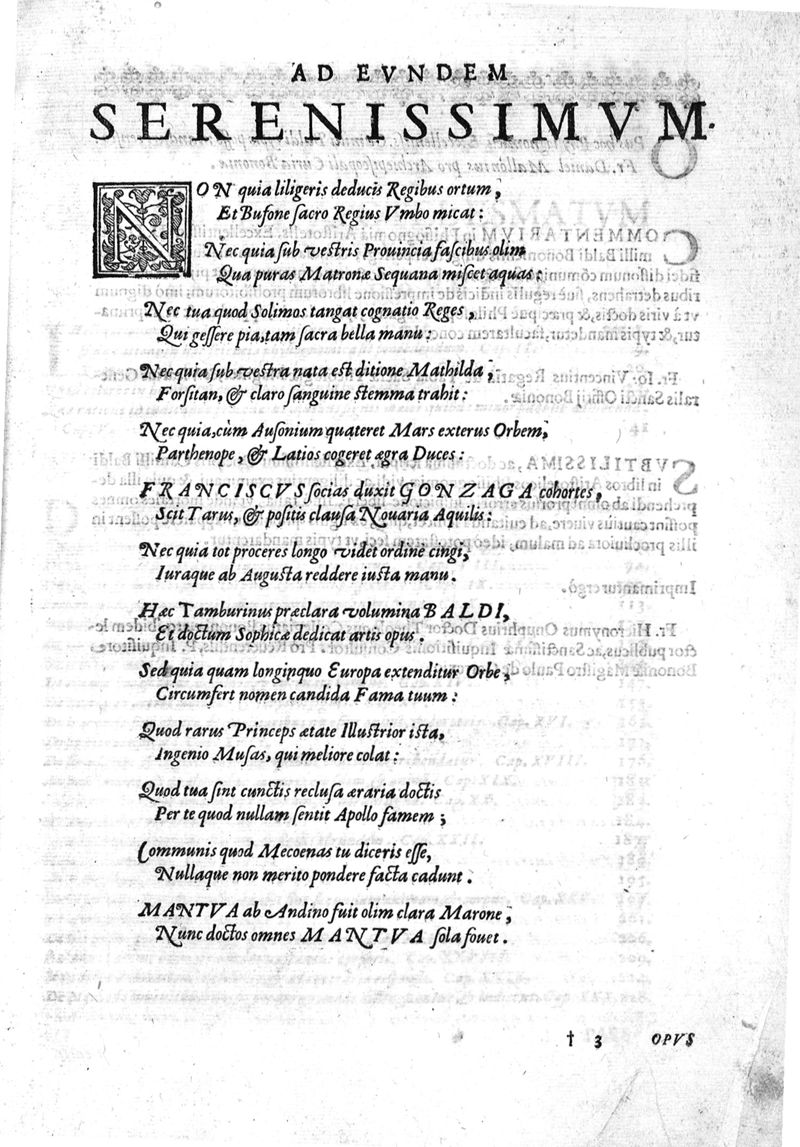 AD EVNDEM
SERENISSIMVM.
NON quia liligeris deducis Regibus ortum,
Et Bufone sacro Regius Vmbo micat:
Nec quia sub vestris Prouincia fascibus olim
Qua puras Matronæ Sequana miscet aquas:
Nec tua quod Solimos tangat cognatio Reges,
Qui gessere pia, tam sacra bella manu:
Nec quia sub vestra nata est ditione Mathilda,
Forsitan, & claro sanguine stemma trahit:
Nec quia, cùm Ausonium quateret Mars exterus Orbem,
Parthenope, & Latios cogeret ægra Duces:
FRANCISCVS socias duxit GONZAGA cohortes,
Scit Tarus, & positis clausa Nouaria Aquilis:
Nec quia tot proceres longo videt ordine cingi,
Iuraque ab Augusta reddere iusta manu.
Hæc Tamburinus præclara volumina BALDI,
Et doctum Sophicæ dedicat artis opus.
Sed quia quam longinquo Europa extenditur Orbe,
Circumfert nomen candida Fama tuum:
Quod rarus Princeps ætate Illustrior ista,
Ingenio Musas, qui meliore colat:
Quod tua sint cunctis reclusa æraria doctis
Per te quod nullam sentit Apollo famem;
Communis quod Mecoenas tu diceris esse,
Nullaque non merito pondere facta cadunt.
MANTVA ab Andino fuit olim clara Marone,
Nunc doctos omnes MANTVA sola fouet.
† 3 OPVS